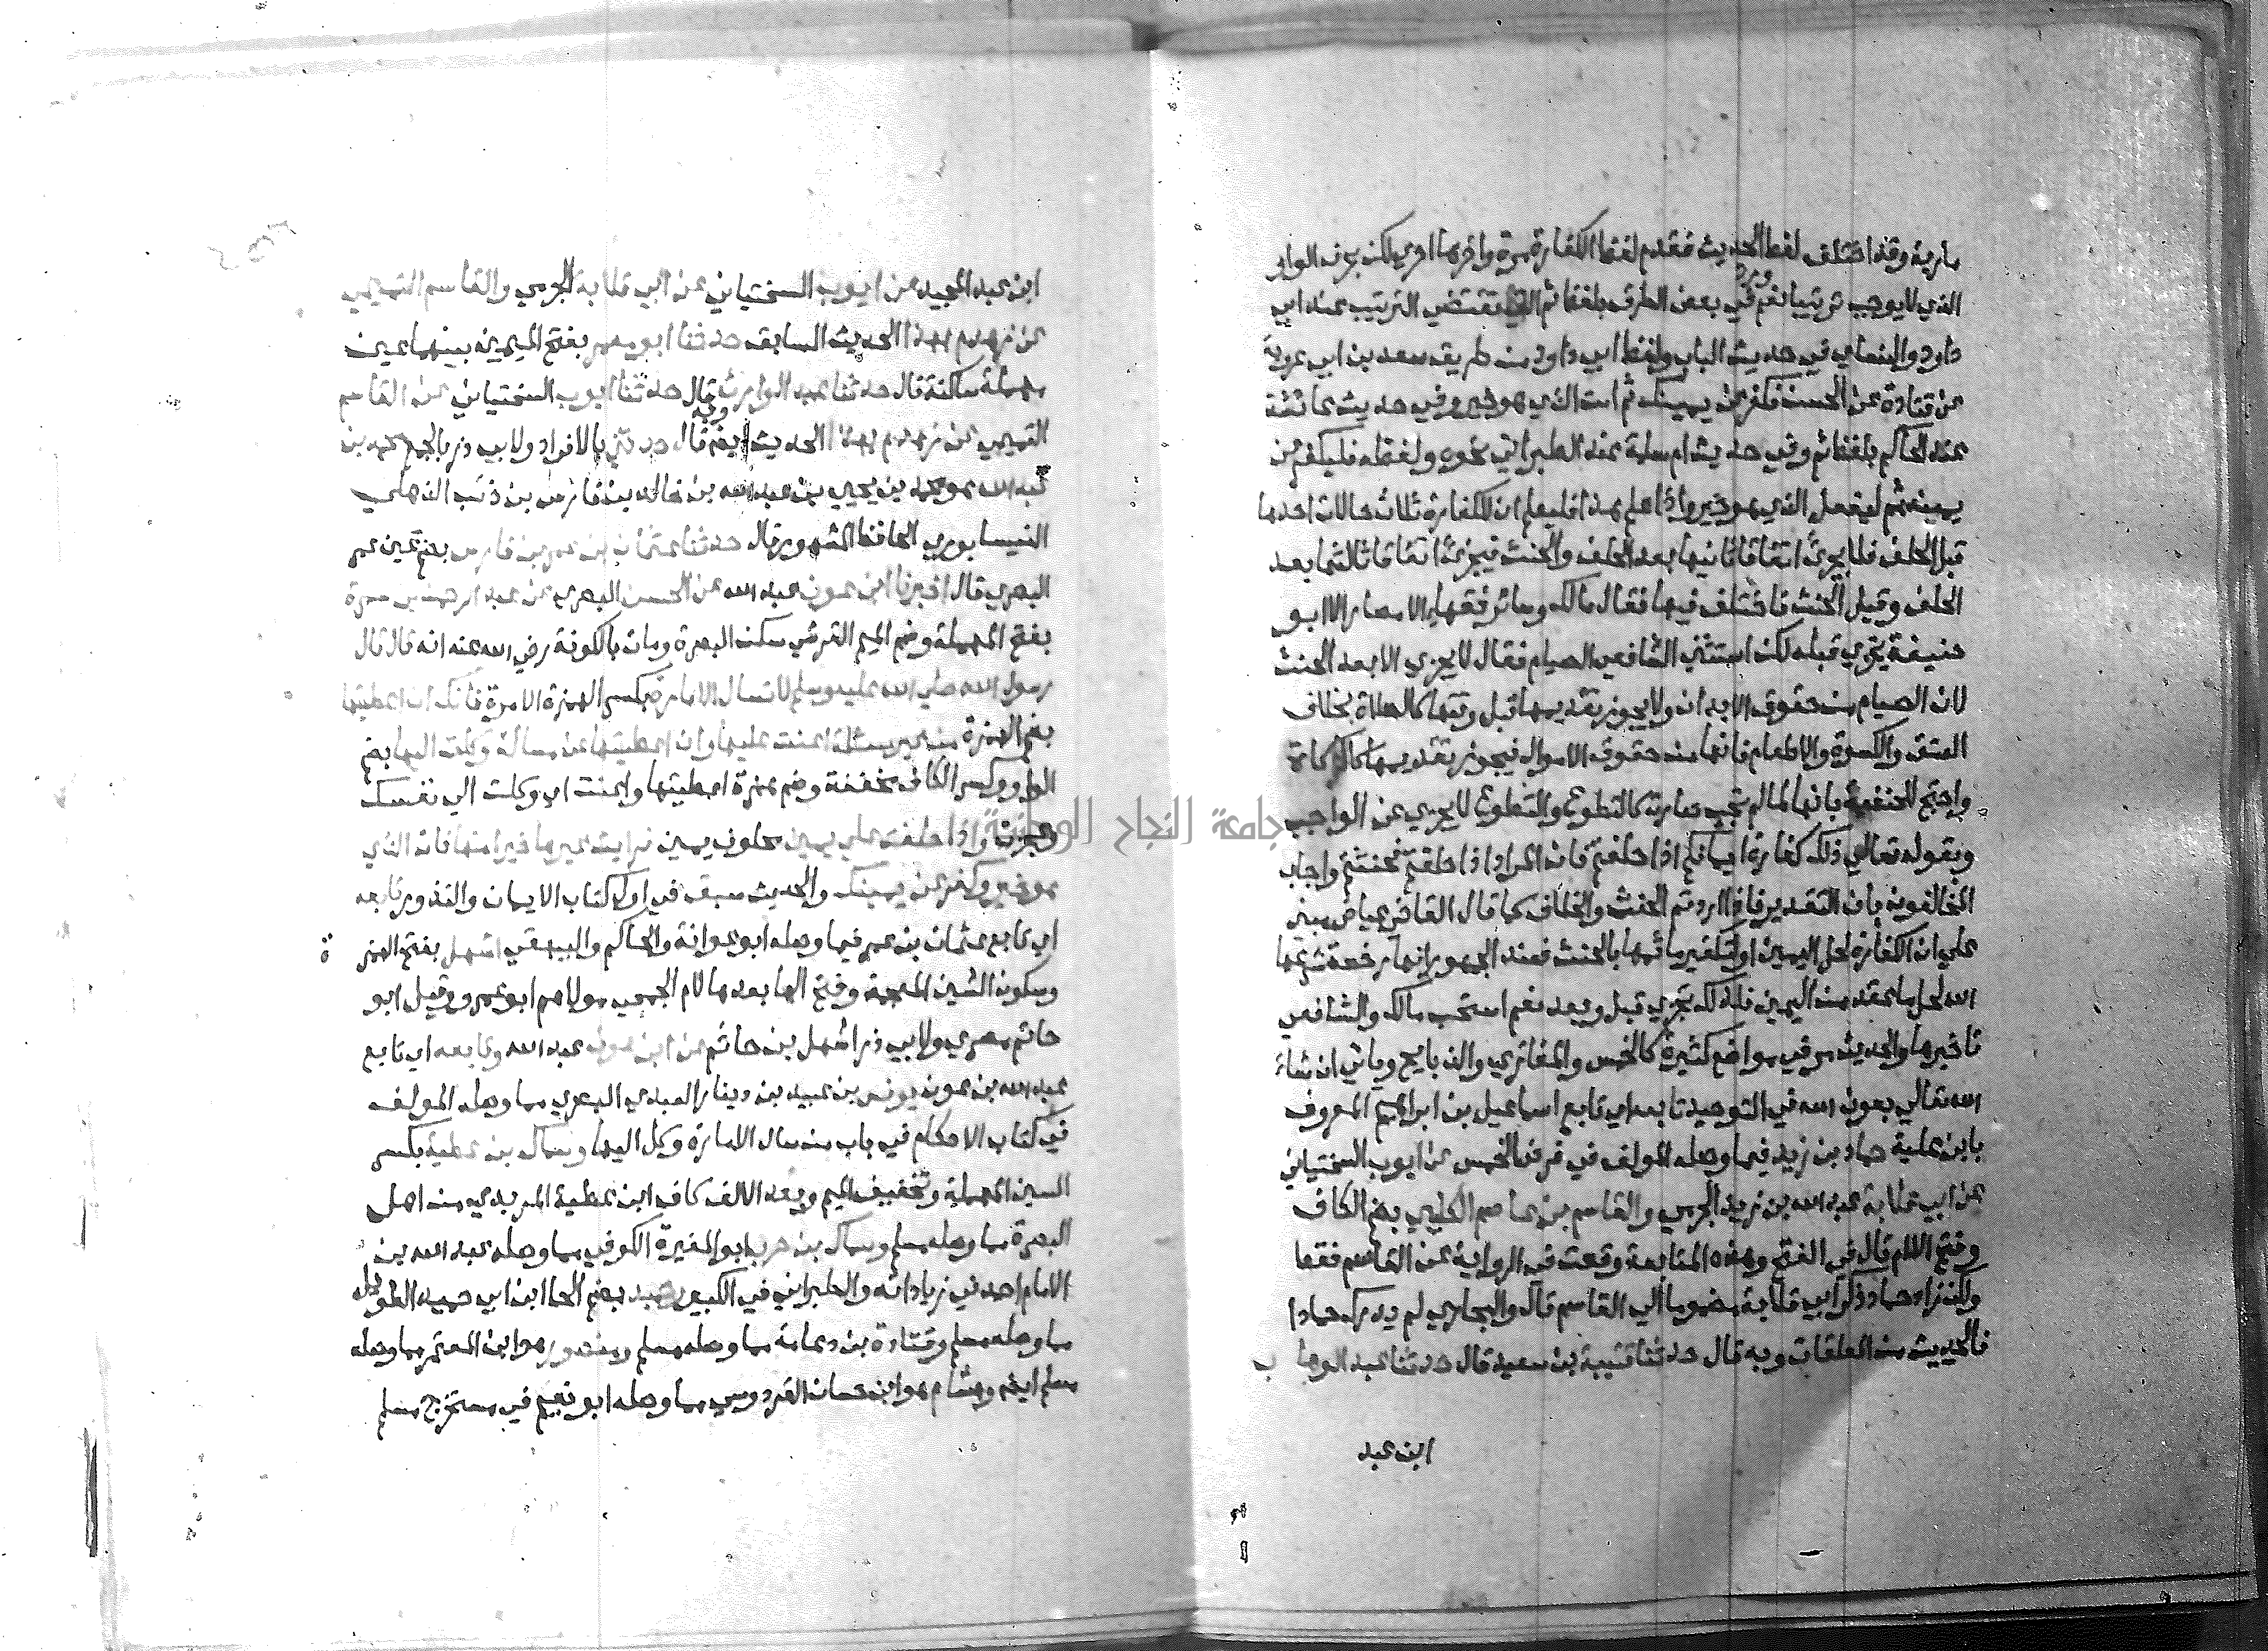 مارية وقد اختلف لفظ الحديث فقدم لفظ الكفارة مرة واخرها اخري لكن بحرف الواو
الذي لا يوجب ترتيبا نعم ورد في بعض الطرق بلفظ ثم التي تقتضي الترتيب عند ابي
داود والنساي في حديث الباب ولفظ ابي داود من طريق سعد بن ابي عروبة
عن قتادة عن الحسن فكفر عن يمينك ثم ات الذي هو خير وفي حديث عائشة
عند الحاكم بلفظ ثم وفي حديث ام سلمة عند الطبراني نحوه ولفظه فليكفر عن
يمينه ثم ليفعل الذي هو خير واذا علم هذا فليعلم ان للكفارة ثلاث حالات احدها
قبل الحلف فلا يجزئ اتفاقا ثانيها بعد الحلف والحنث فيجزئ اتفاقا ثالثها بعد
الحلف وقبل الحنث فاختلف فيها فقال مالك وسائر فقهاء الامصار الا ابو
حنيفة يجزي قبله لكن استثني الشافعي الصيام فقال لا يجزي الا بعد الحنث
لان الصيام من حقوق الابدان ولا يجوز تقديمها قبل وقتها كالصلاة بخلاف
العتق والكسوة والاطعام فانها من حقوق الاموال فيجوز تقديمها كالزكاة
واحتج الحنفية بانها لما لم تجب صارت كالتطوع والتطوع لا يجزي عن الواجب
وبقوله تعالي ذلك كفارة ايمانكم اذا حلفتم فان المراد اذا حلفتم فحنثتم واجاب
المخالفون بان التقدير فاذا اردتم الحنث والخلاف كما قال القاضي عياض مبني
علي ان الكفارة لحل اليمين او لتكفير ماثمها بالحنث فعند الجمهور انها رخصة شرعها
الله لحل ما عقد من اليمين فلذلك تجزي قبل وبعد نعم استحب مالك والشافعي
تاخيرها والحديث مر في مواضع كثيرة كالخمس والمغازي والذبايح وياتي ان شاء
الله تعالي بعون الله في التوحيد تابعه اي تابع اسماعيل بن ابراهيم المعروف
بابن علية حماد بن زيد فيما وصله المولف في فرض الخمس عن ايوب السختياني
عن ابي قلابة عبد الله بن زيد الجرمي والقاسم بن عاصم الكليبي بضم الكاف
وفتح اللام قال في الفتح وهذه المتابعة وقعت في الرواية عن القاسم فقط
ولكن زاد حماد ذكر ابي قلابة مضموما الي القاسم قال والبخاري لم يدرك حمادا
فالحديث من المعلقات وبه قال حدثنا قتيبة بن سعيد قال حدثنا عبد الوهاب
ابن عبد
ابن عبد المجيد عن ايوب السختياني عن ابي قلابة الجرمي والقاسم التميمي
عن زهدم بهذا الحديث السابق حدثنا ابو معمر بفتح الميمين بينهما عين
مهملة ساكنة قال حدثنا عبد الوارث قال حدثنا ايوب السختياني عن القاسم
التميمي عن زهدم بهذا الحديث ايضا وبه قال حدثني بالافراد ولابي ذر بالجمع محمد بن
عبد الله هو محمد بن يحيي بن عبد الله بن خالد بن فارس بن ذئب الذهلي
النيسابوري الحافظ المشهور قال حدثنا عثمان بن عمر بن فارس بضم عين عمر
البصري قال اخبرنا ابن عون عبد الله عن الحسن البصري عن عبد الرحمن بن سمرة
بفتح المهملة وضم الميم القرشي سكن البصرة ومات بالكوفة رضي الله عنه انه قال قال
رسول الله صلي الله عليه وسلم لا تسال الامارة بكسر الهمزة الامرة فانك ان اعطيتها
بضم الهمزة من غير مسئلة اعنت عليها وان اعطيتها عن مسالة وكلت اليها بضم
الواو وكسر الكاف مخففة وضم همزة اعطيتها واعنت اي وكلت الي نفسك
وعجزت واذا حلفت علي يمين محلوف يمين فرايت غيرها خيرا منها فات الذي
هو خير وكفر عن يمينك والحديث سبق في اول كتاب الايمان والنذور تابعه
اي تابع عثمان بن عمر فيما وصله ابو عوانة والحاكم والبيهقي اشهل بفتح الهمزة
وسكون الشين المعجمة وفتح الها بعدها لام الجمحي مولاهم ابو عمرو وقيل ابو
حاتم بصري ولابي ذر اشهل بن حاتم عن ابن عون عبد الله وتابعه اي تابع
عبد الله بن عون يونس بن عبيد بن دينار العبدي البصري مما وصله المولف
في كتاب الاحكام في باب من سال الامارة وكل اليها وسماك بن عطية بكسر
السين المهملة وتخفيف الميم وبعد الالف كاف ابن عطية المربدي من اهل
البصرة مما وصله مسلم وسماك بن حرب ابو المغيرة الكوفي مما وصله عبد الله بن
الامام احمد في زياداته والطبراني في الكبير وحميد بضم الحا ابن ابي حميد الطويل
مما وصله مسلم وقتادة بن دعامة مما وصله مسلم ومنصور هو ابن المعتمر مما وصله
مسلم ايضا وهشام هو ابن حسان القردوسي مما وصله ابو نعيم في مستخرج مسلم
جامعة النجاح الوطنية